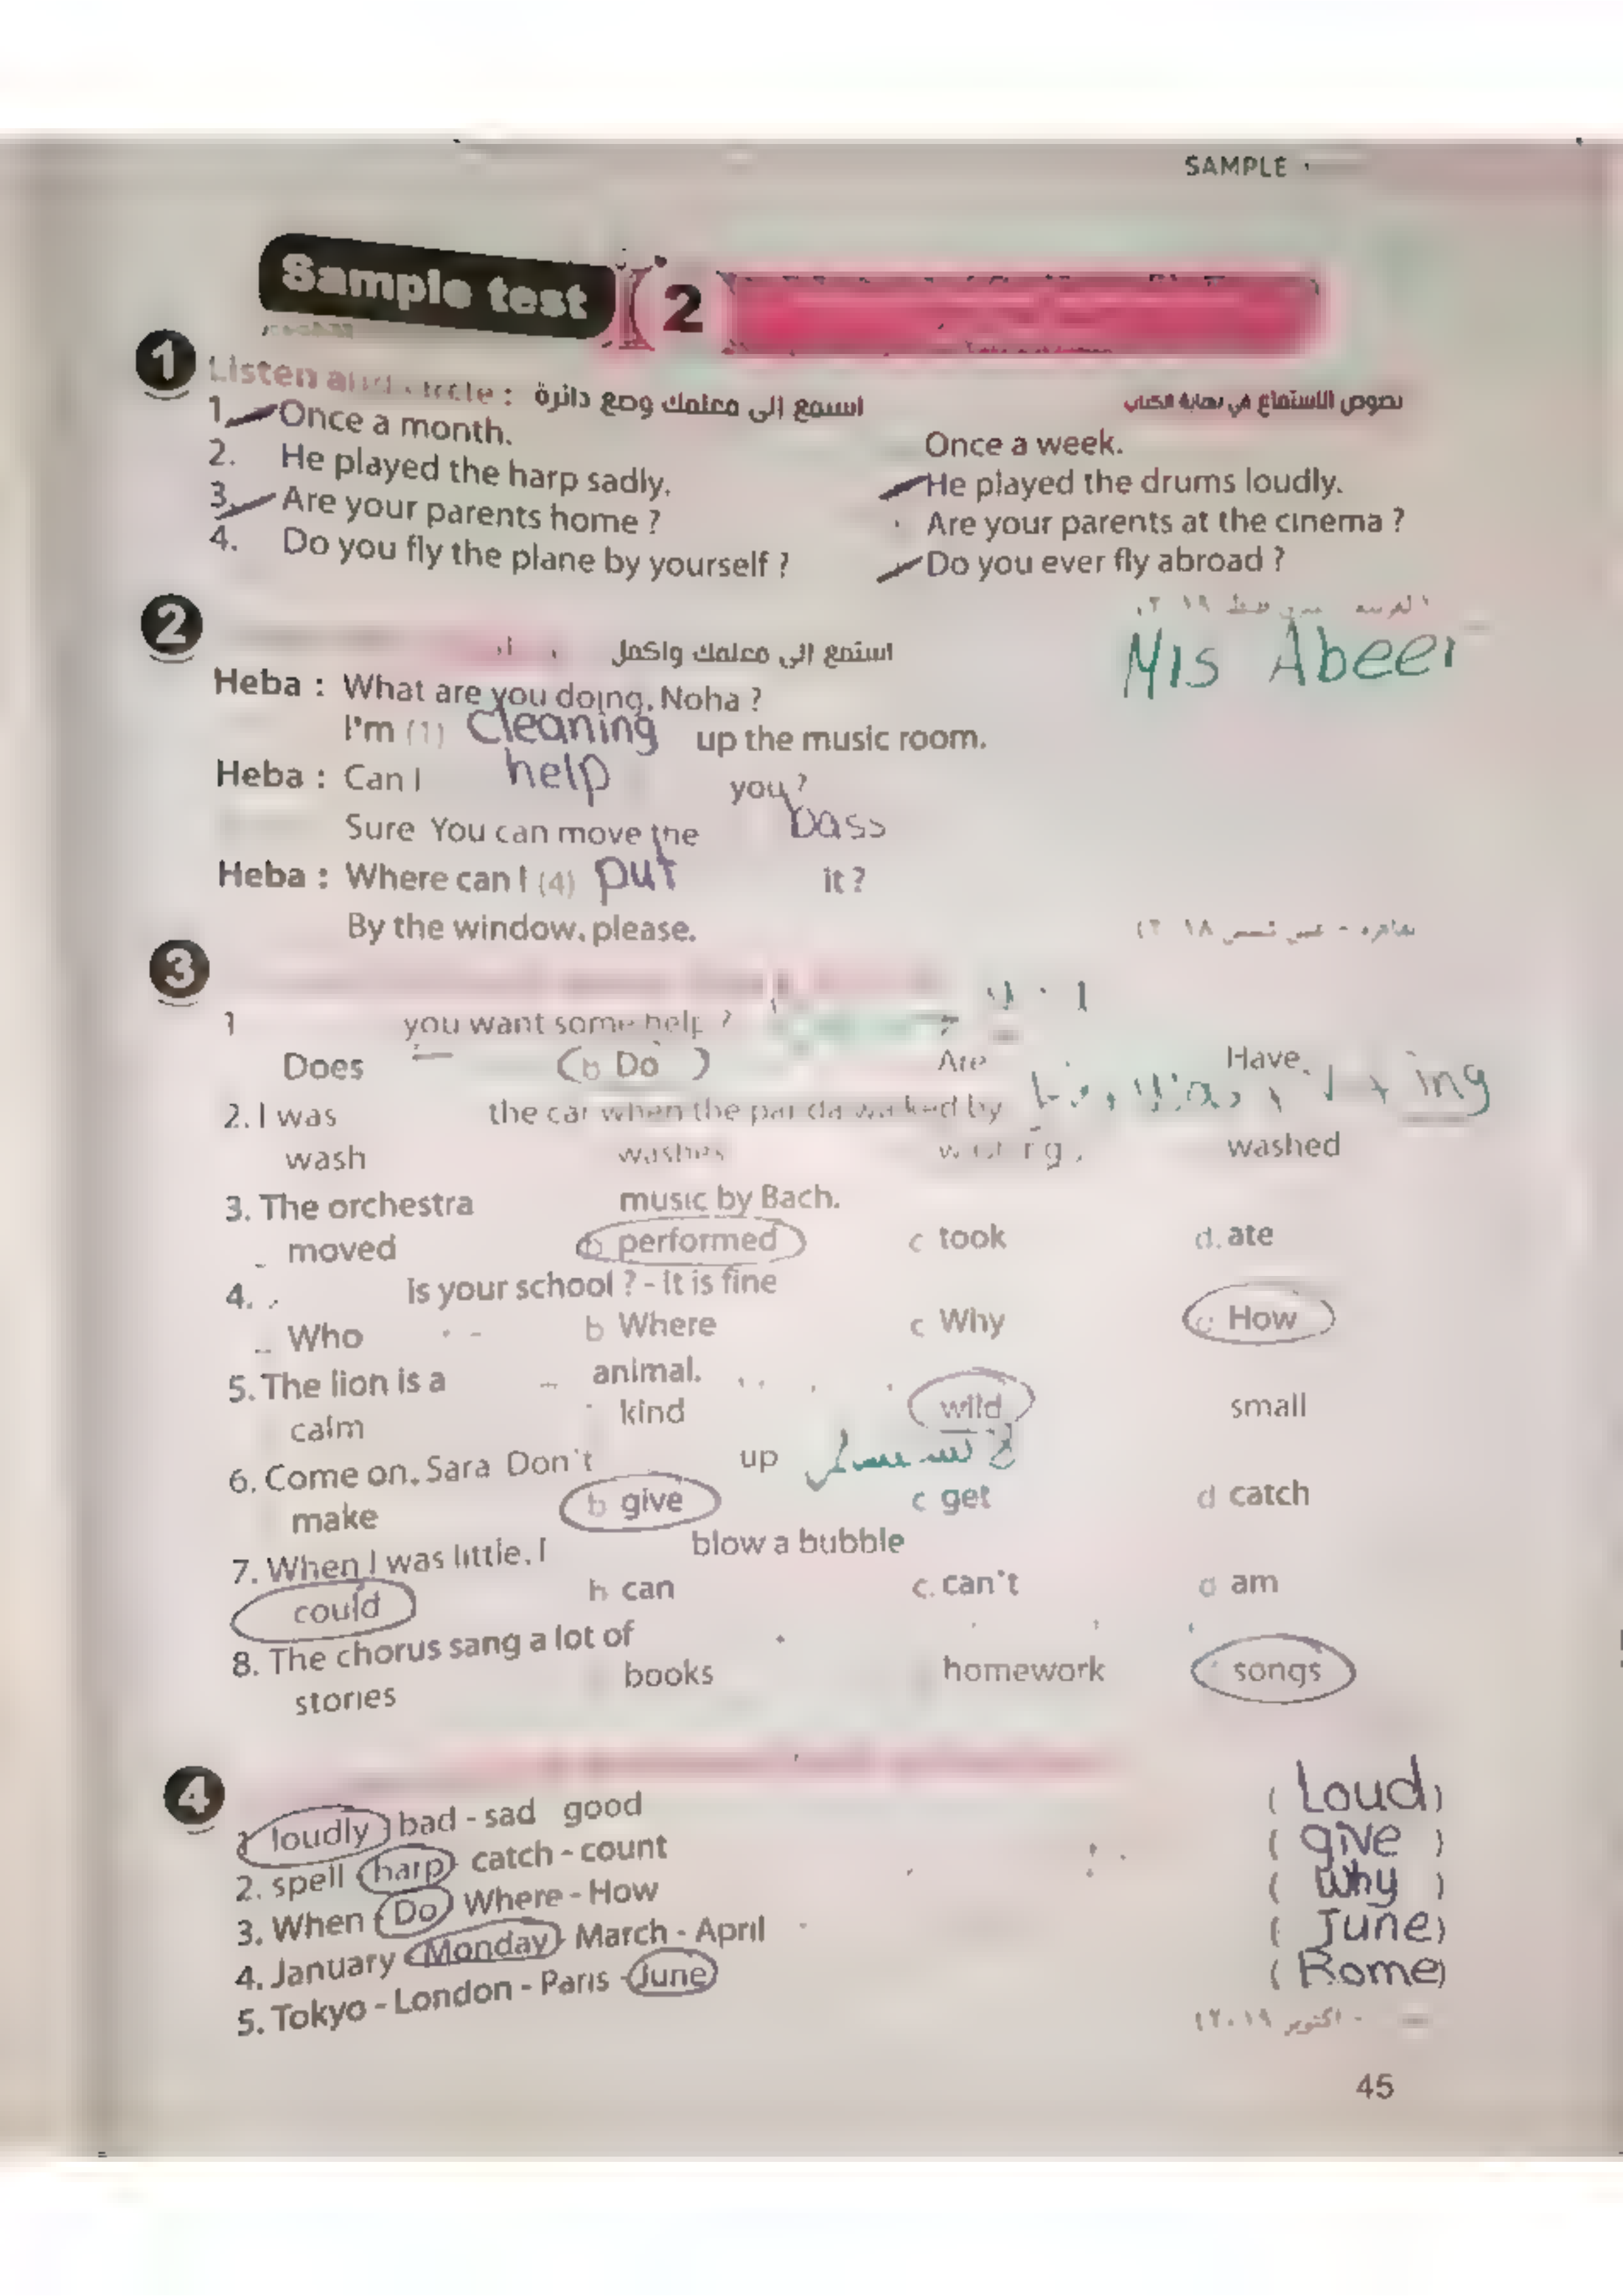 SAMPLE
Sample test 2
1 Listen and circle : استمع إلى معلمك وضع دائرة نصوص الاستماع في نهاية الكتاب
1. Once a month. Once a week.
2. He played the harp sadly. He played the drums loudly.
3. Are your parents home ? Are your parents at the cinema ?
4. Do you fly the plane by yourself ? Do you ever fly abroad ?
2 استمع إلى معلمك واكمل
Mis Abeer
Heba : What are you doing, Noha ?
I'm (1) cleaning up the music room.
Heba : Can I help you ?
Sure You can move the bass
Heba : Where can I (4) put it ?
By the window, please.
3
1 you want some help ?
Does b Do Are Have
2. I was the car when the panda walked by
ing
wash washes washed
3. The orchestra music by Bach.
moved b performed c took d. ate
4. Is your school ? - It is fine
Who b Where c Why How
5. The lion is a animal.
calm kind wild small
6. Come on, Sara Don't up
make b give c get d catch
7. When I was little, I blow a bubble
could can c. can't d am
8. The chorus sang a lot of
stories books homework songs
4
1 loudly bad - sad good ( Loud )
2. spell harp catch - count ( give )
3. When Do Where - How ( Why )
4. January Monday March - April ( June )
5. Tokyo - London - Paris - June ( Rome )
- أكتوبر ٢٠١٩)
45